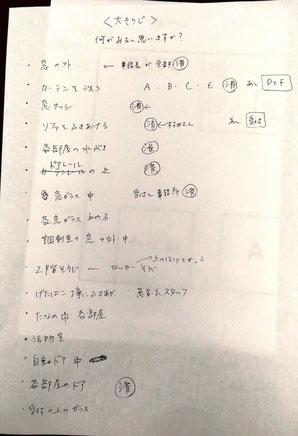 <大そうじ>
何があると思いますか?
・窓のソト ← 事務長が全部 済
・カーテンを洗う A・B・C・E 済 あと DとF
・窓サッシ 済←
・ソファをふきあげる 済← さん あと 受付
・各部屋の水ぶき 済
・ドアレール の上 済
・窓ガラス 中 受付と事務所 済
・各窓ガラス
・個別室の窓 外中
・2F掃そうじ ← ロッカー そうじ 上のほこりとか、
・げたばこ 丁寧にふきあげ 患者&スタッフ
・たなの中 各部屋
・洗物室
・自動ドア 中
・各部屋のドア 済
・受付の上のガラス